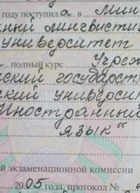 году поступил а в Мин
ный лингвистич
университет
полный курс Учреж
ский государств
ский универси
Иностранный
язык"
й экзаменационной комиссии
2005 года, протокол №